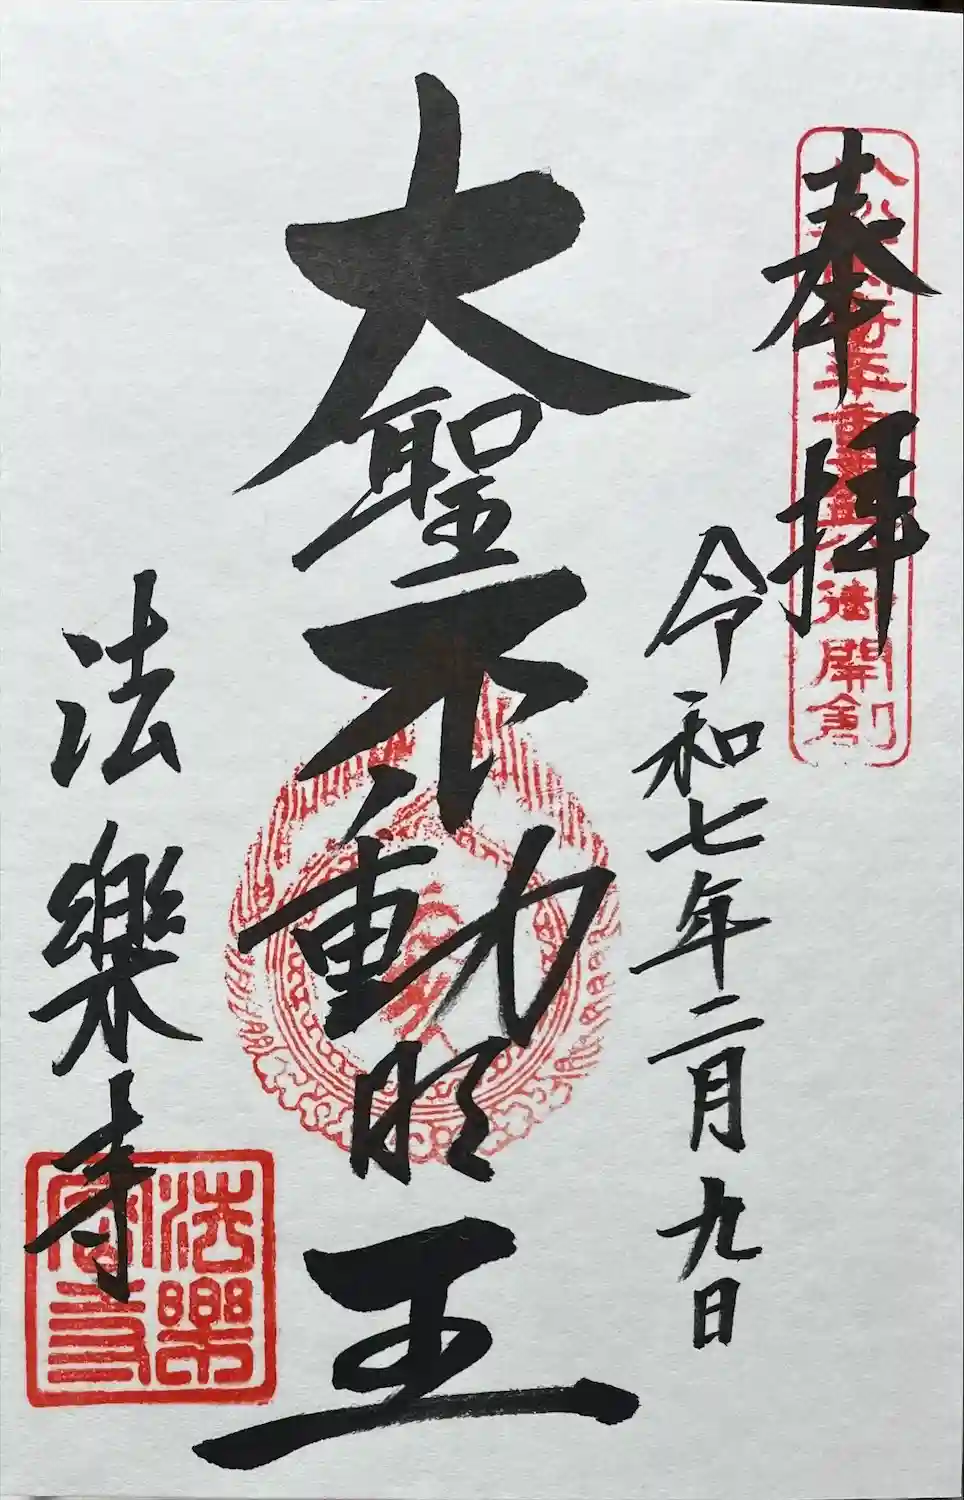 奉拝
令和七年二月九日
大聖不動明王
法樂寺